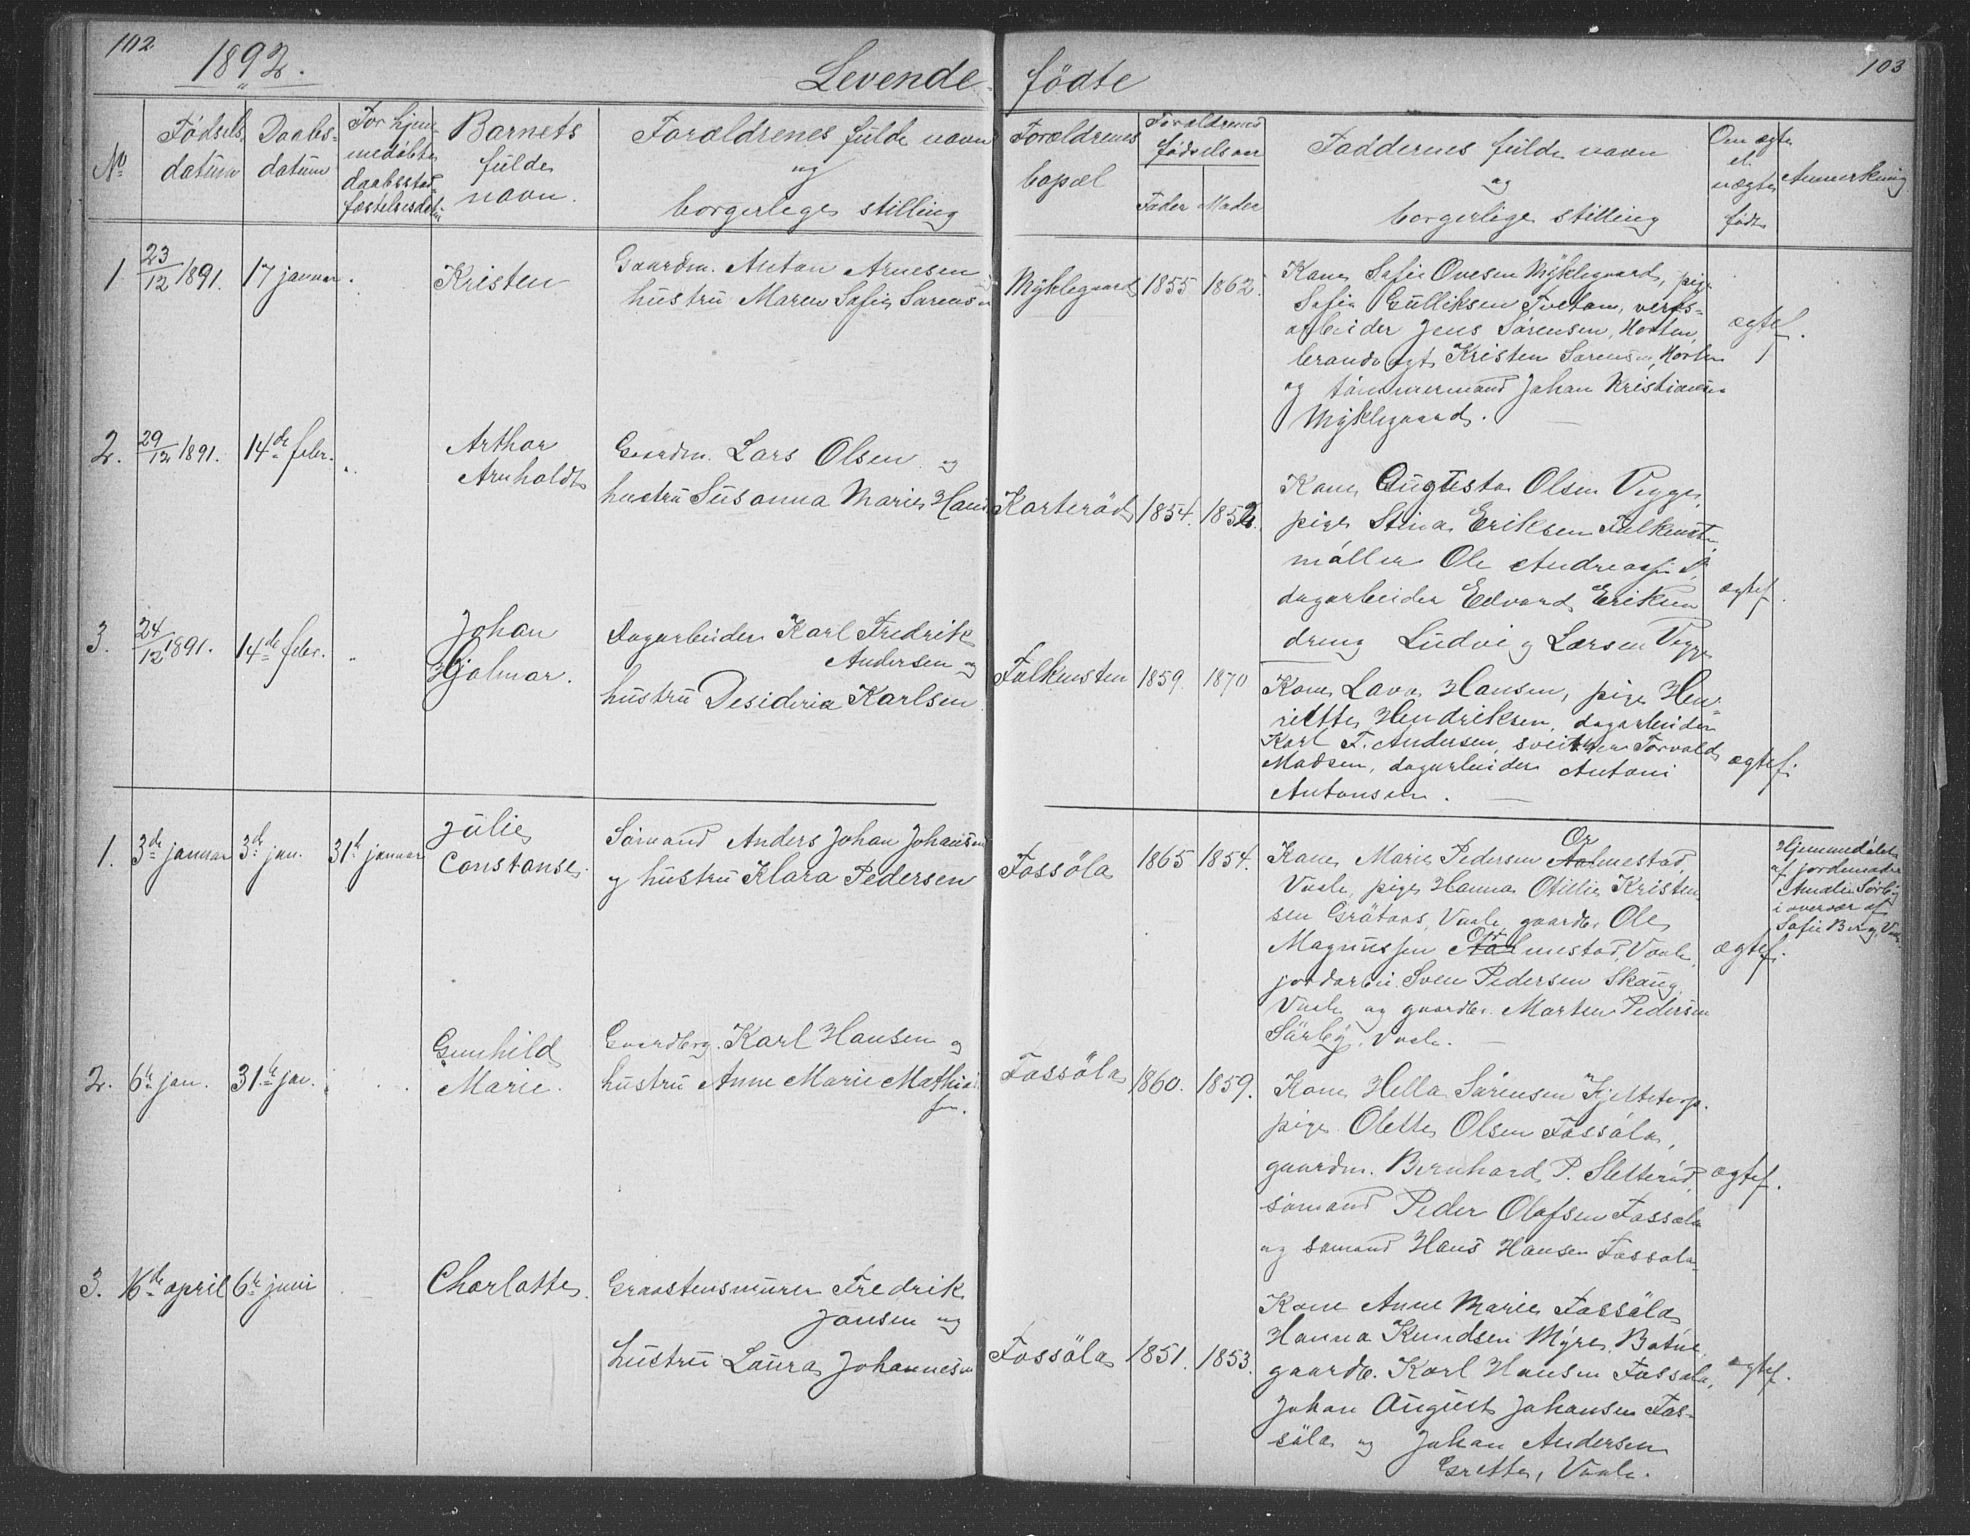 102
1892.
Levende
fødte
103
No
Fødsels
datum
Daabs-
datum
For hjem-
medøbte
daabsstad-
fæstelsesdat
Barnets
fulde
navn.
Forældrenes fulde navn
og
borgerlige stilling
Forældrenes
bopæl
Forældrenes
fødselsaar
Fader Moder
Faddernes fulde navn
og
borgerlige stilling
Om ægte
el.
uægte
født
Anmerkning
1 23/12 1891. 17 januar Kristen
Gaardm. Anton Arnesen
hustru Maren Sofie Sørensen
Myklegaard 1855 1862.
Kone Sofie Ovesen Myklegaard, pige
Sofie Gulliksen Tvetan, verks-
arbeider Jens Sørensen, Horten,
brandvagt Kristen Sørensen, Horten
og tømmermand Johan Kristiansen
Myklegaard.
ægtef.
2. 29/12 1891. 14de febr. Arthor
Arnholdt
Gaardm. Lars Olsen og
hustru Susanna Marie Hans
Korterød 1854. 1852.
Kone Augusta Olsen Vegge,
pige Stina Eriksen Falkensten
møller Ole Andreassen
dagarbeider Edvard Eriksen
dreng Ludvig Larsen Vegge
ægtef.
3. 24/12 1891. 14de febr. Johan
Hjalmar.
Dagarbeider Karl Fredrik
Andersen og
hustru Desideria Karlsen
Falkensten 1859. 1870
Kone Lava Hansen, pige Hen-
riette Hendriksen, dagarbeider
Karl F. Andersen, sveitser Torvald
Madsen, dagarbeider Antoni
Antonsen.
ægtef.
1. 3de januar 3de jan. 31te januar Julie
Constanse
Sømand Anders Johan Johansen
og hustru Klara Pedersen
Fossøla 1865 1854.
Kone Marie Pedersen Or
Aalmestad,
Vaale, pige Hanna Otillie Kristen
sen Grøtaas, Vaale, gaardbr. Ole
Magnussen Aalmestad, Vaale,
jordarbei. Sven Pedersen Skaug,
Vaale og gaardbr. Morten Pedersen
Sørby, Vaale.
ægtef.
Hjemmedøbt
af jordemoder
Amalie Sørby
i overvær af
Sofie Berg, Vaale
2. 6te jan. 31te jan. Gunhild
Marie.
Gaardbrg. Karl Hansen og
hustru Anne Marie Mathia
sen.
Fossøla 1860. 1859.
Kone Hella Sørensen Kjeltetorp.
pige Olette Olsen Fossøla,
gaardm. Bernhard P. Sletterød,
sømand Peder Olafsen Fossøla
og sømand Hans Hansen Fossøla
ægtef.
3. 16de april 6te juni Charlotte.
Graastensmurer Fredrik
Jansen og
hustru Laura Johannesen
Fossøla 1851. 1853.
Kone Anne Marie Fossøla
Hanna Knudsen Myre, Botne
gaardbr. Karl Hansen Fossøla,
Johan August Johansen Fos-
søla og Johan Andersen
Grette, Vaale.
ægtef.